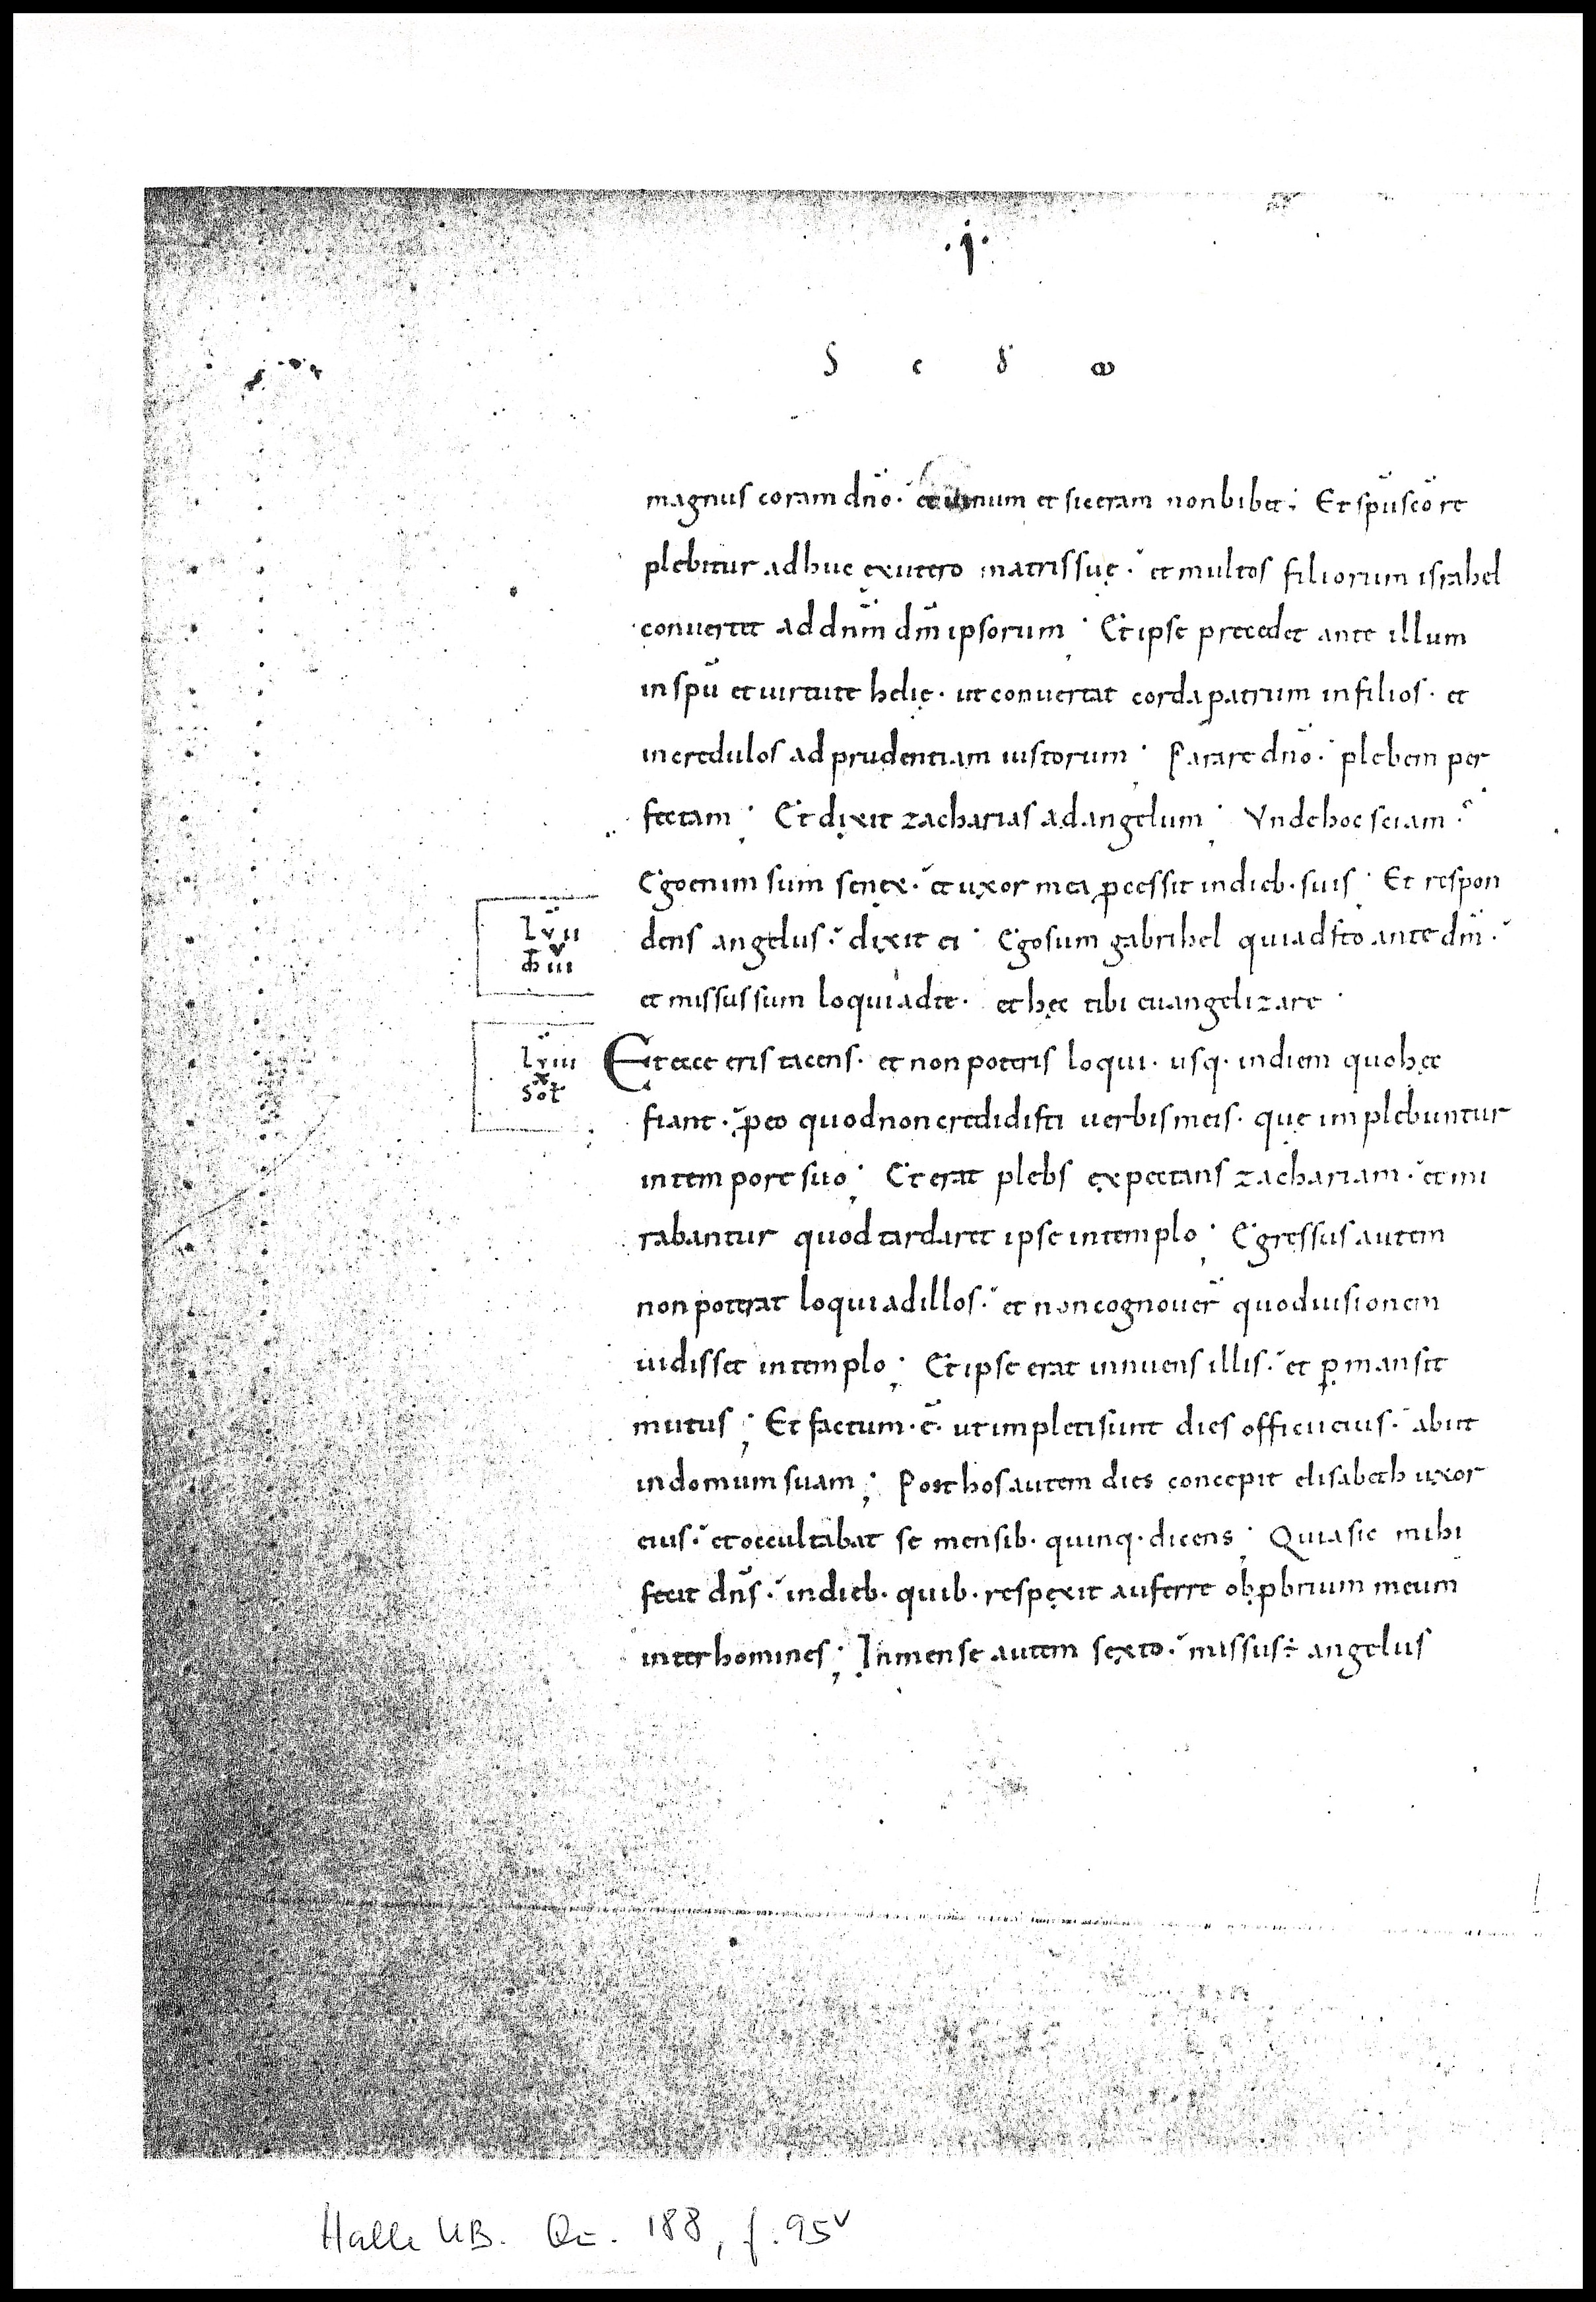 ·j·
S c d m
magnus coram dn̄o· et uinum et siceram non bibet; Et sp̄u sc̄o re
plebitur adhuc ex utero matris suę· et multos filiorum israhel
conuertet ad dn̄m dm̄ ipsorum; Et ipse precedet ante illum
in sp̄u et uirtute helię· ut conuertat corda patrum in filios· et
incredulos ad prudentiam iustorum; Parare dn̄o· plebem per
fectam; Et dixit zacharias ad angelum; Vnde hoc sciam·
Ego enim sum senex· et uxor mea ꝓcessit in dieb· suis; Et respon
lvii
dens angelus· dixit ei; Ego sum gabrihel qui adsto ante dm̄·
et missus sum loqui ad te· et hęc tibi euangelizare·
lviii
x
sol
Et ecce eris tacens· et non poteris loqui· usq· in diem quo hęc
fiant· ꝓ eo quod non credidisti uerbis meis· quę implebuntur
in tempore suo; Et erat plebs expectans zachariam· et mi
rabantur quod tardaret ipse in templo; Egressus autem
non poterat loqui ad illos· et non cognouer̄ quod uisionem
uidisset in templo; Et ipse erat innuens illis· et ꝑmansit
mutus; Et factum· ē· ut impleti sunt dies officii eius· abiit
in domum suam; Post hos autem dies concepit elisabeth uxor
eius· et occultabat se mensib· quinq· dicens; Quia sic mihi
fecit dn̄s· in dieb· quib· respexit auferre obꝓbrium meum
inter homines; In mense autem sexto· missus ÷ angelus
Halle UB. Qu. 188, f. 95v